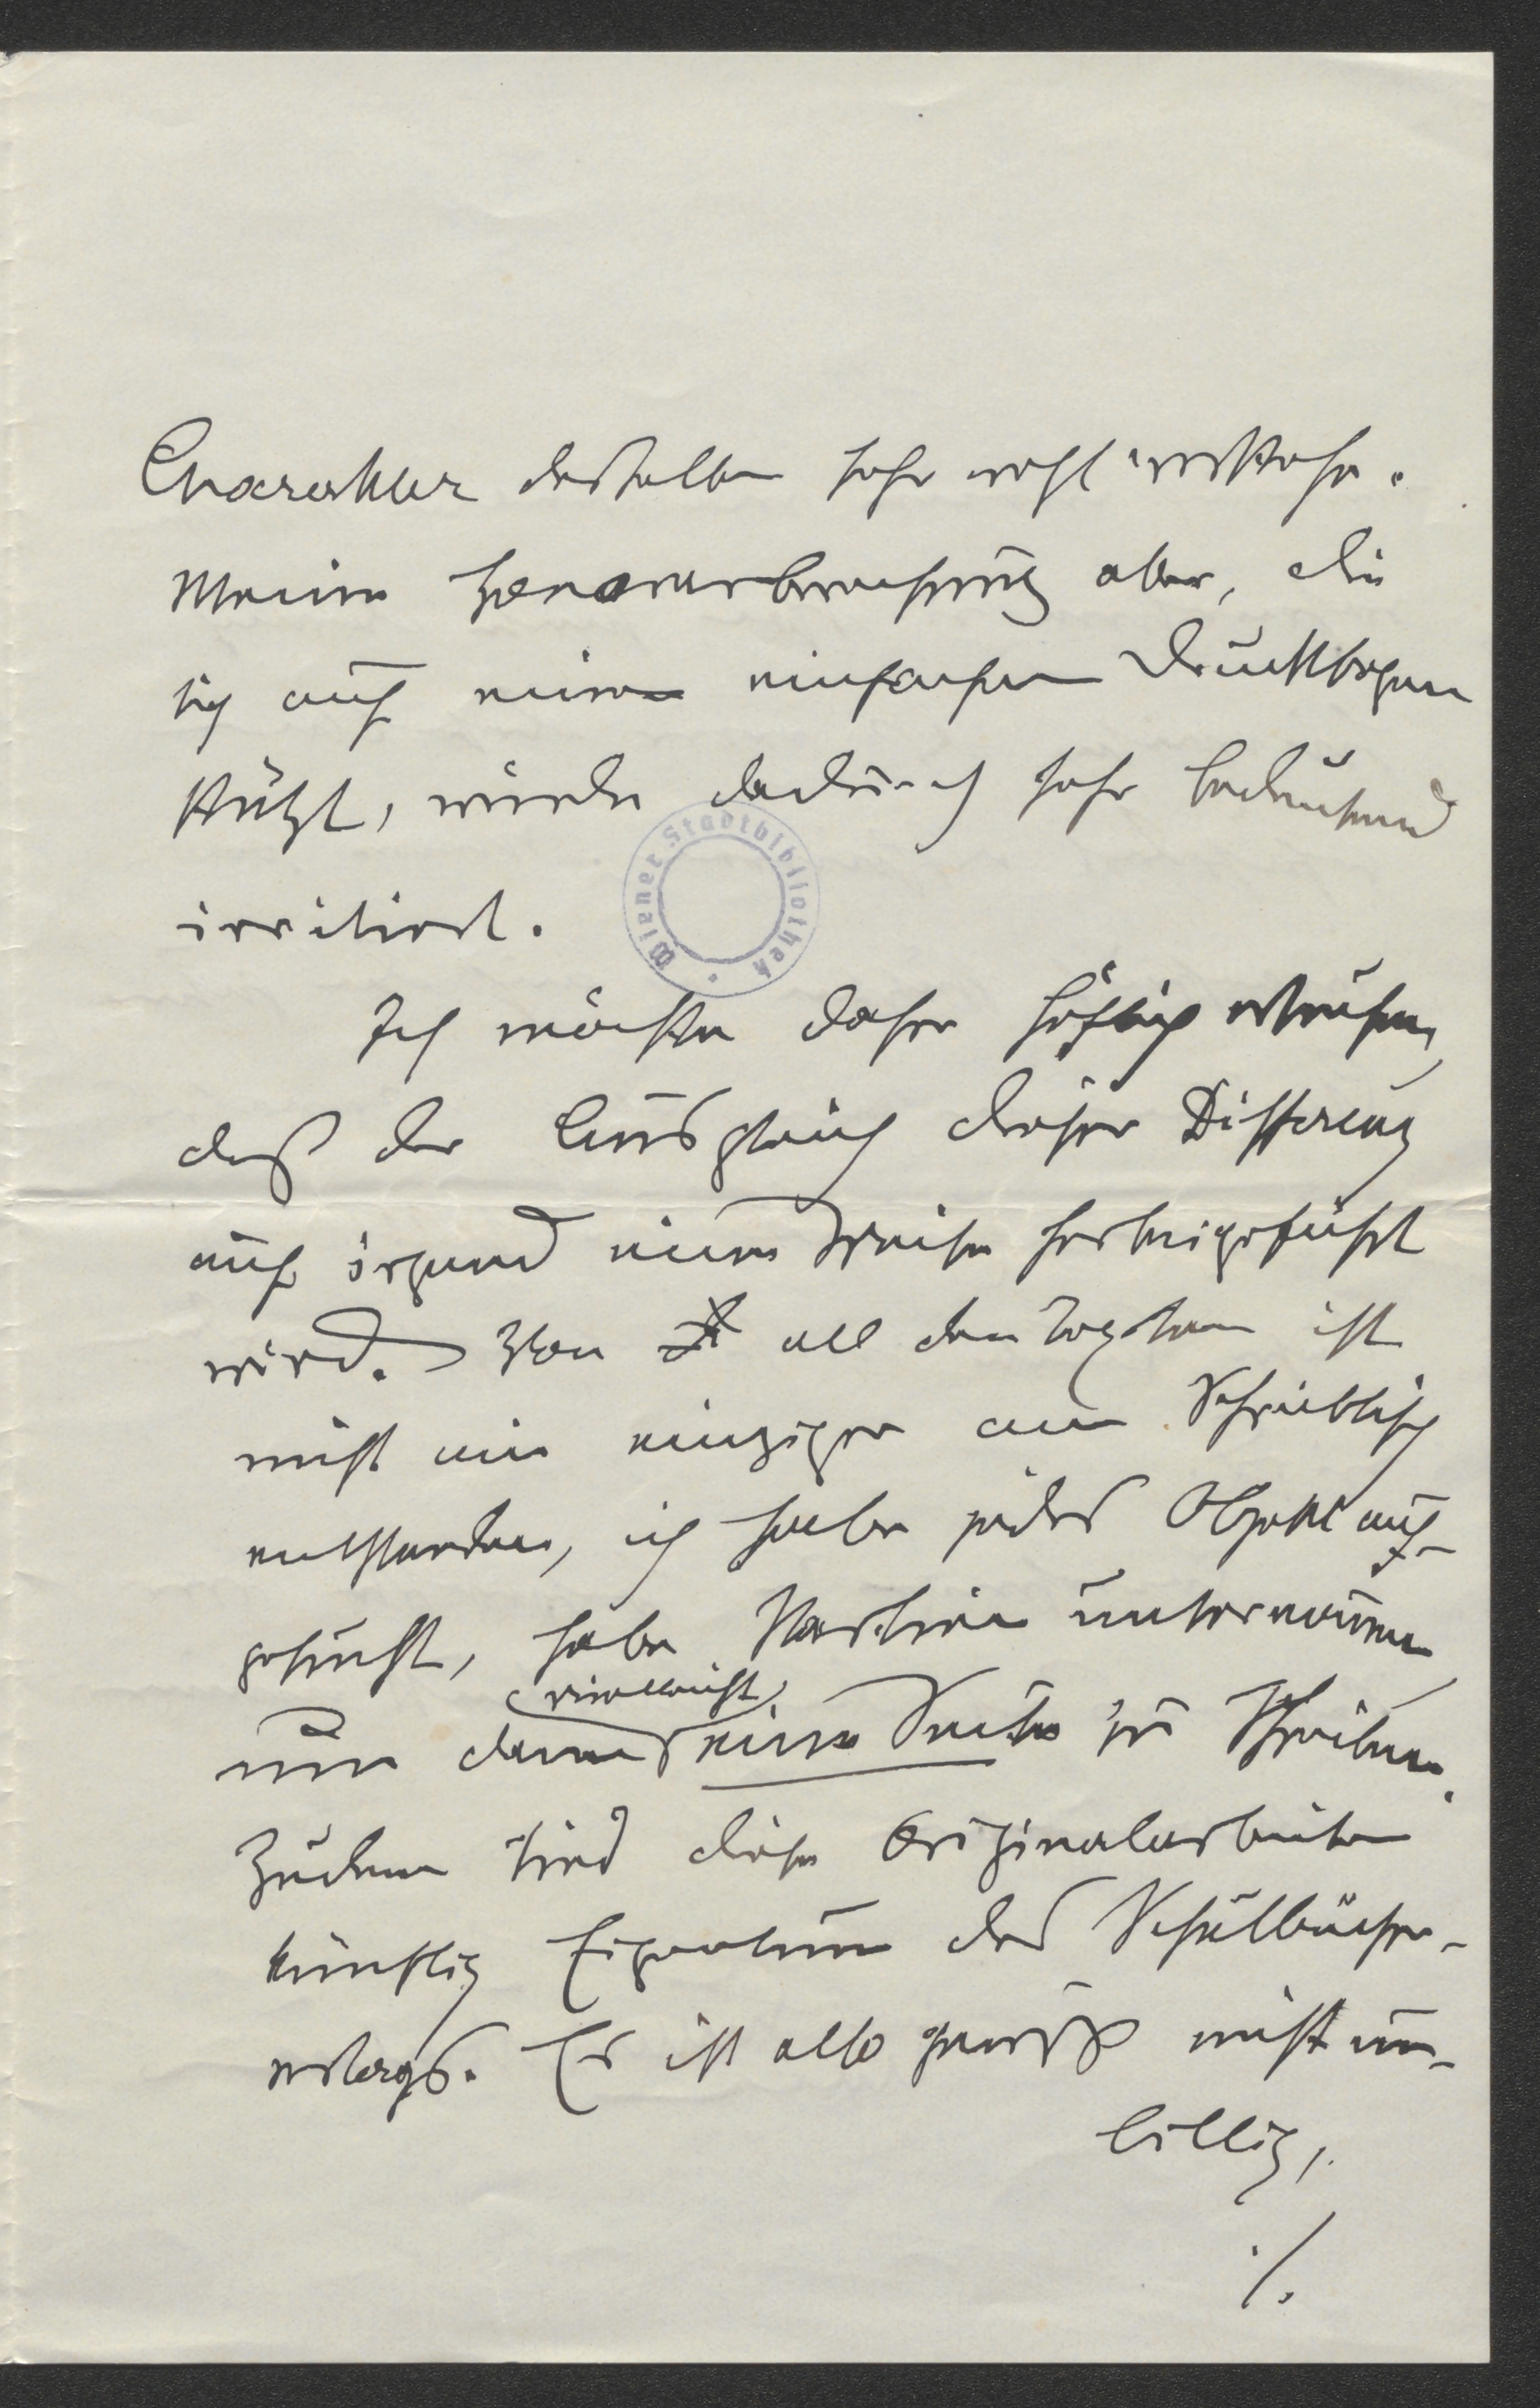 Charakter desselben sehr wohl verstehe.
Meine Honorarberechnung aber, die
sich auf einen einfachen Druckbogen
stützt, würde dadurch sehr bedeutend
irritiert.
Wiener Stadtbibliothek
Ich möchte daher höflich ersuchen,
daß der Ausgleich dieser Differenz
auf irgend eine Weise herbeigeführt
wird. Von all den Texten ist
nicht ein einziger am Schreibtisch
entstanden, ich habe jedes Objekt auf-
gesucht, habe Studien unternommen
um dann vielleicht
eine Seite zu schreiben.
Zudem sind diese Originalarbeiten
künftig Eigentum des Schulbücher-
verlags. Es ist also gewiß nicht un-
billig,
./.